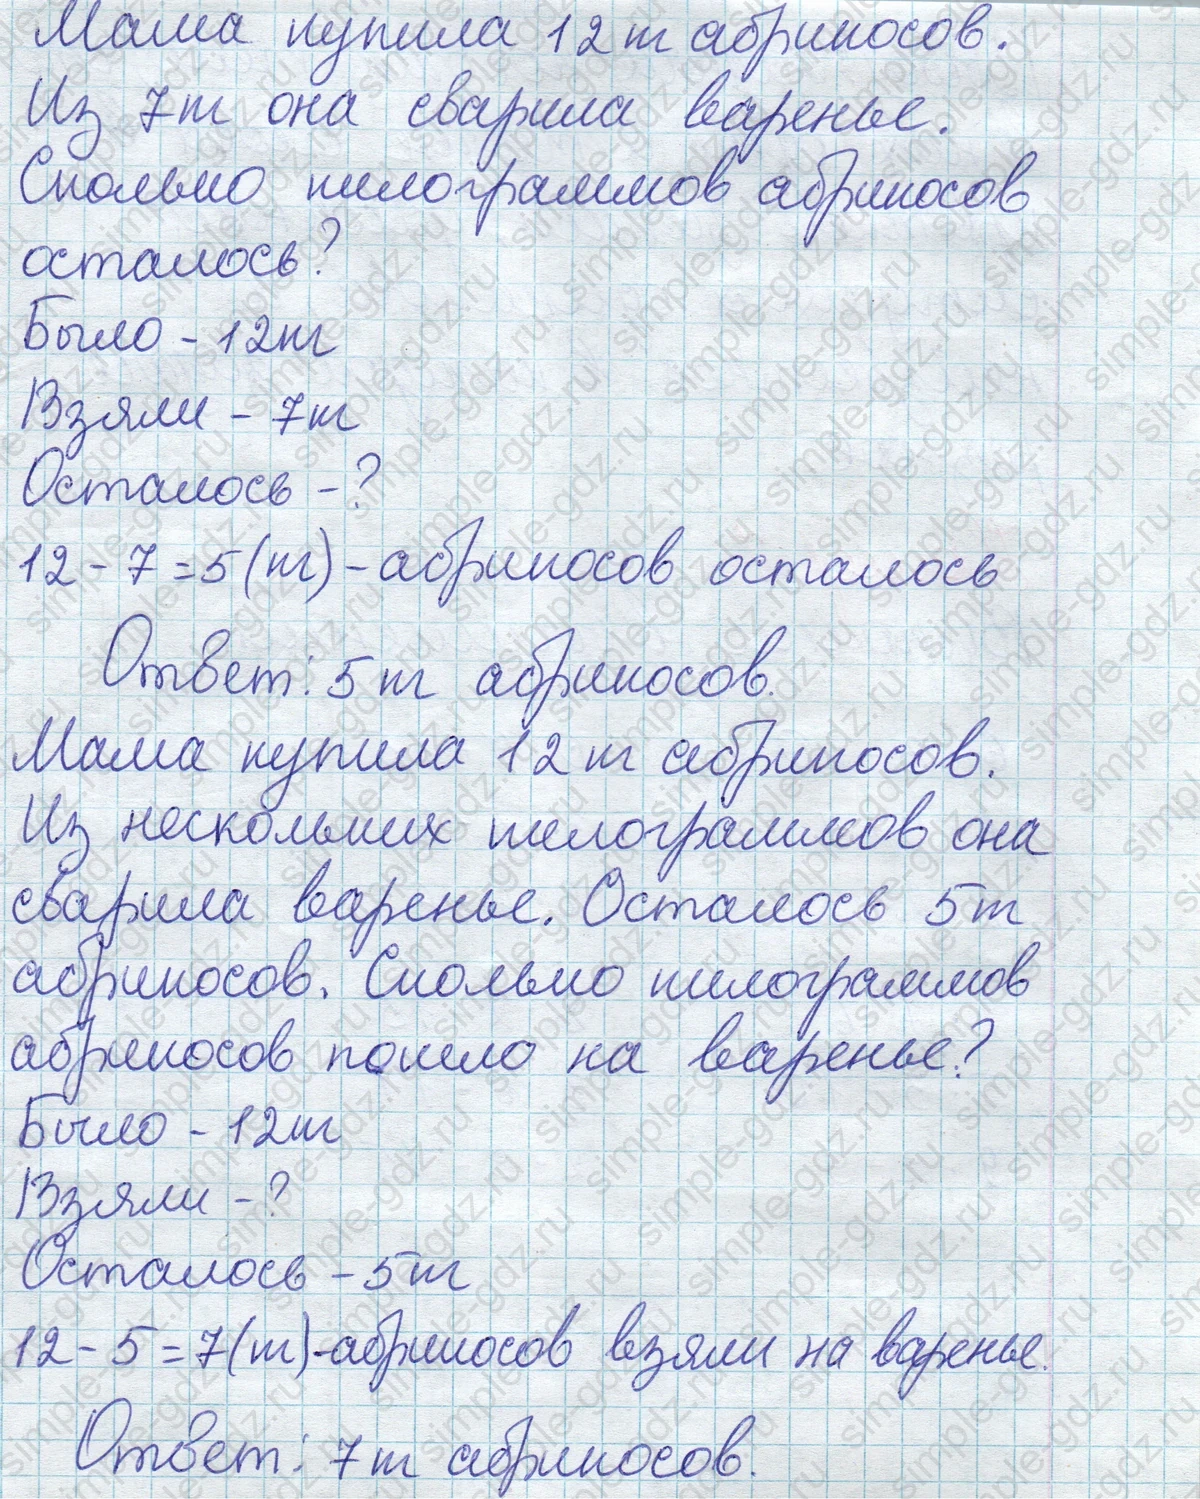 Мама купила 12 кг абрикосов.
Из 7 кг она сварила варенье.
Сколько килограммов абрикосов
осталось?
Было – 12 кг
Взяли – 7 кг
Осталось – ?
12 – 7 = 5 (кг) – абрикосов осталось
Ответ: 5 кг абрикосов.
Мама купила 12 кг абрикосов.
Из нескольких килограммов она
сварила варенье. Осталось 5 кг
абрикосов. Сколько килограммов
абрикосов пошло на варенье?
Было – 12 кг
Взяли – ?
Осталось – 5 кг
12 – 5 = 7 (кг) – абрикосов взяли на варенье.
Ответ: 7 кг абрикосов.
simple-gdz.ru